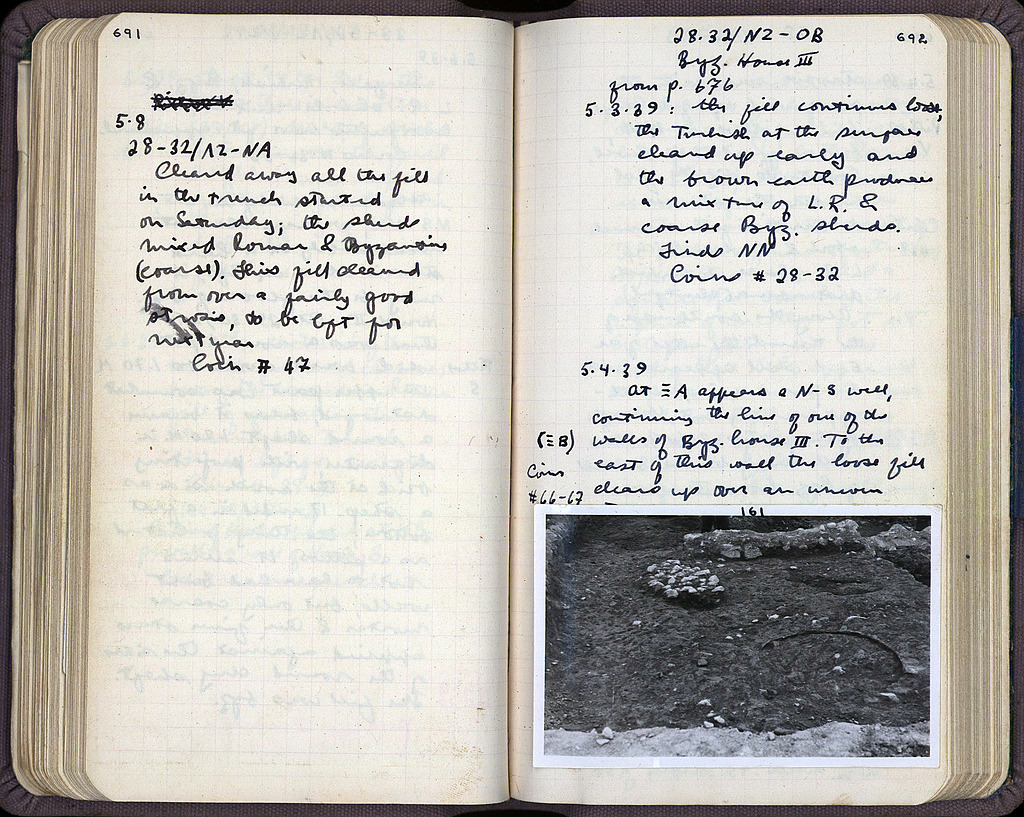 691
5.8
28-32/ΛZ-NA
Cleared away all the fill
in the trench started
on Saturday; the sherds
mixed Roman & Byzantine
(coarse). This fill cleaned
from over a fairly good
strosis, to be left for
next year
Coin # 47
28.32/NZ-OB
692
Byz. House III
from p. 676
5.3.39: the fill continues loose,
the Turkish at the surface
cleaned up early and
the brown earth produces
a mixture of L.R. &
coarse Byz. sherds.
Finds NN
Coins # 28-32
5.4.39
At ΞA appears a N-S wall,
continuing the line of one of the
(ΞB) walls of Byz. house III. To the
Coins east of this wall the loose fill
#66-67 cleans up over an uneven
161